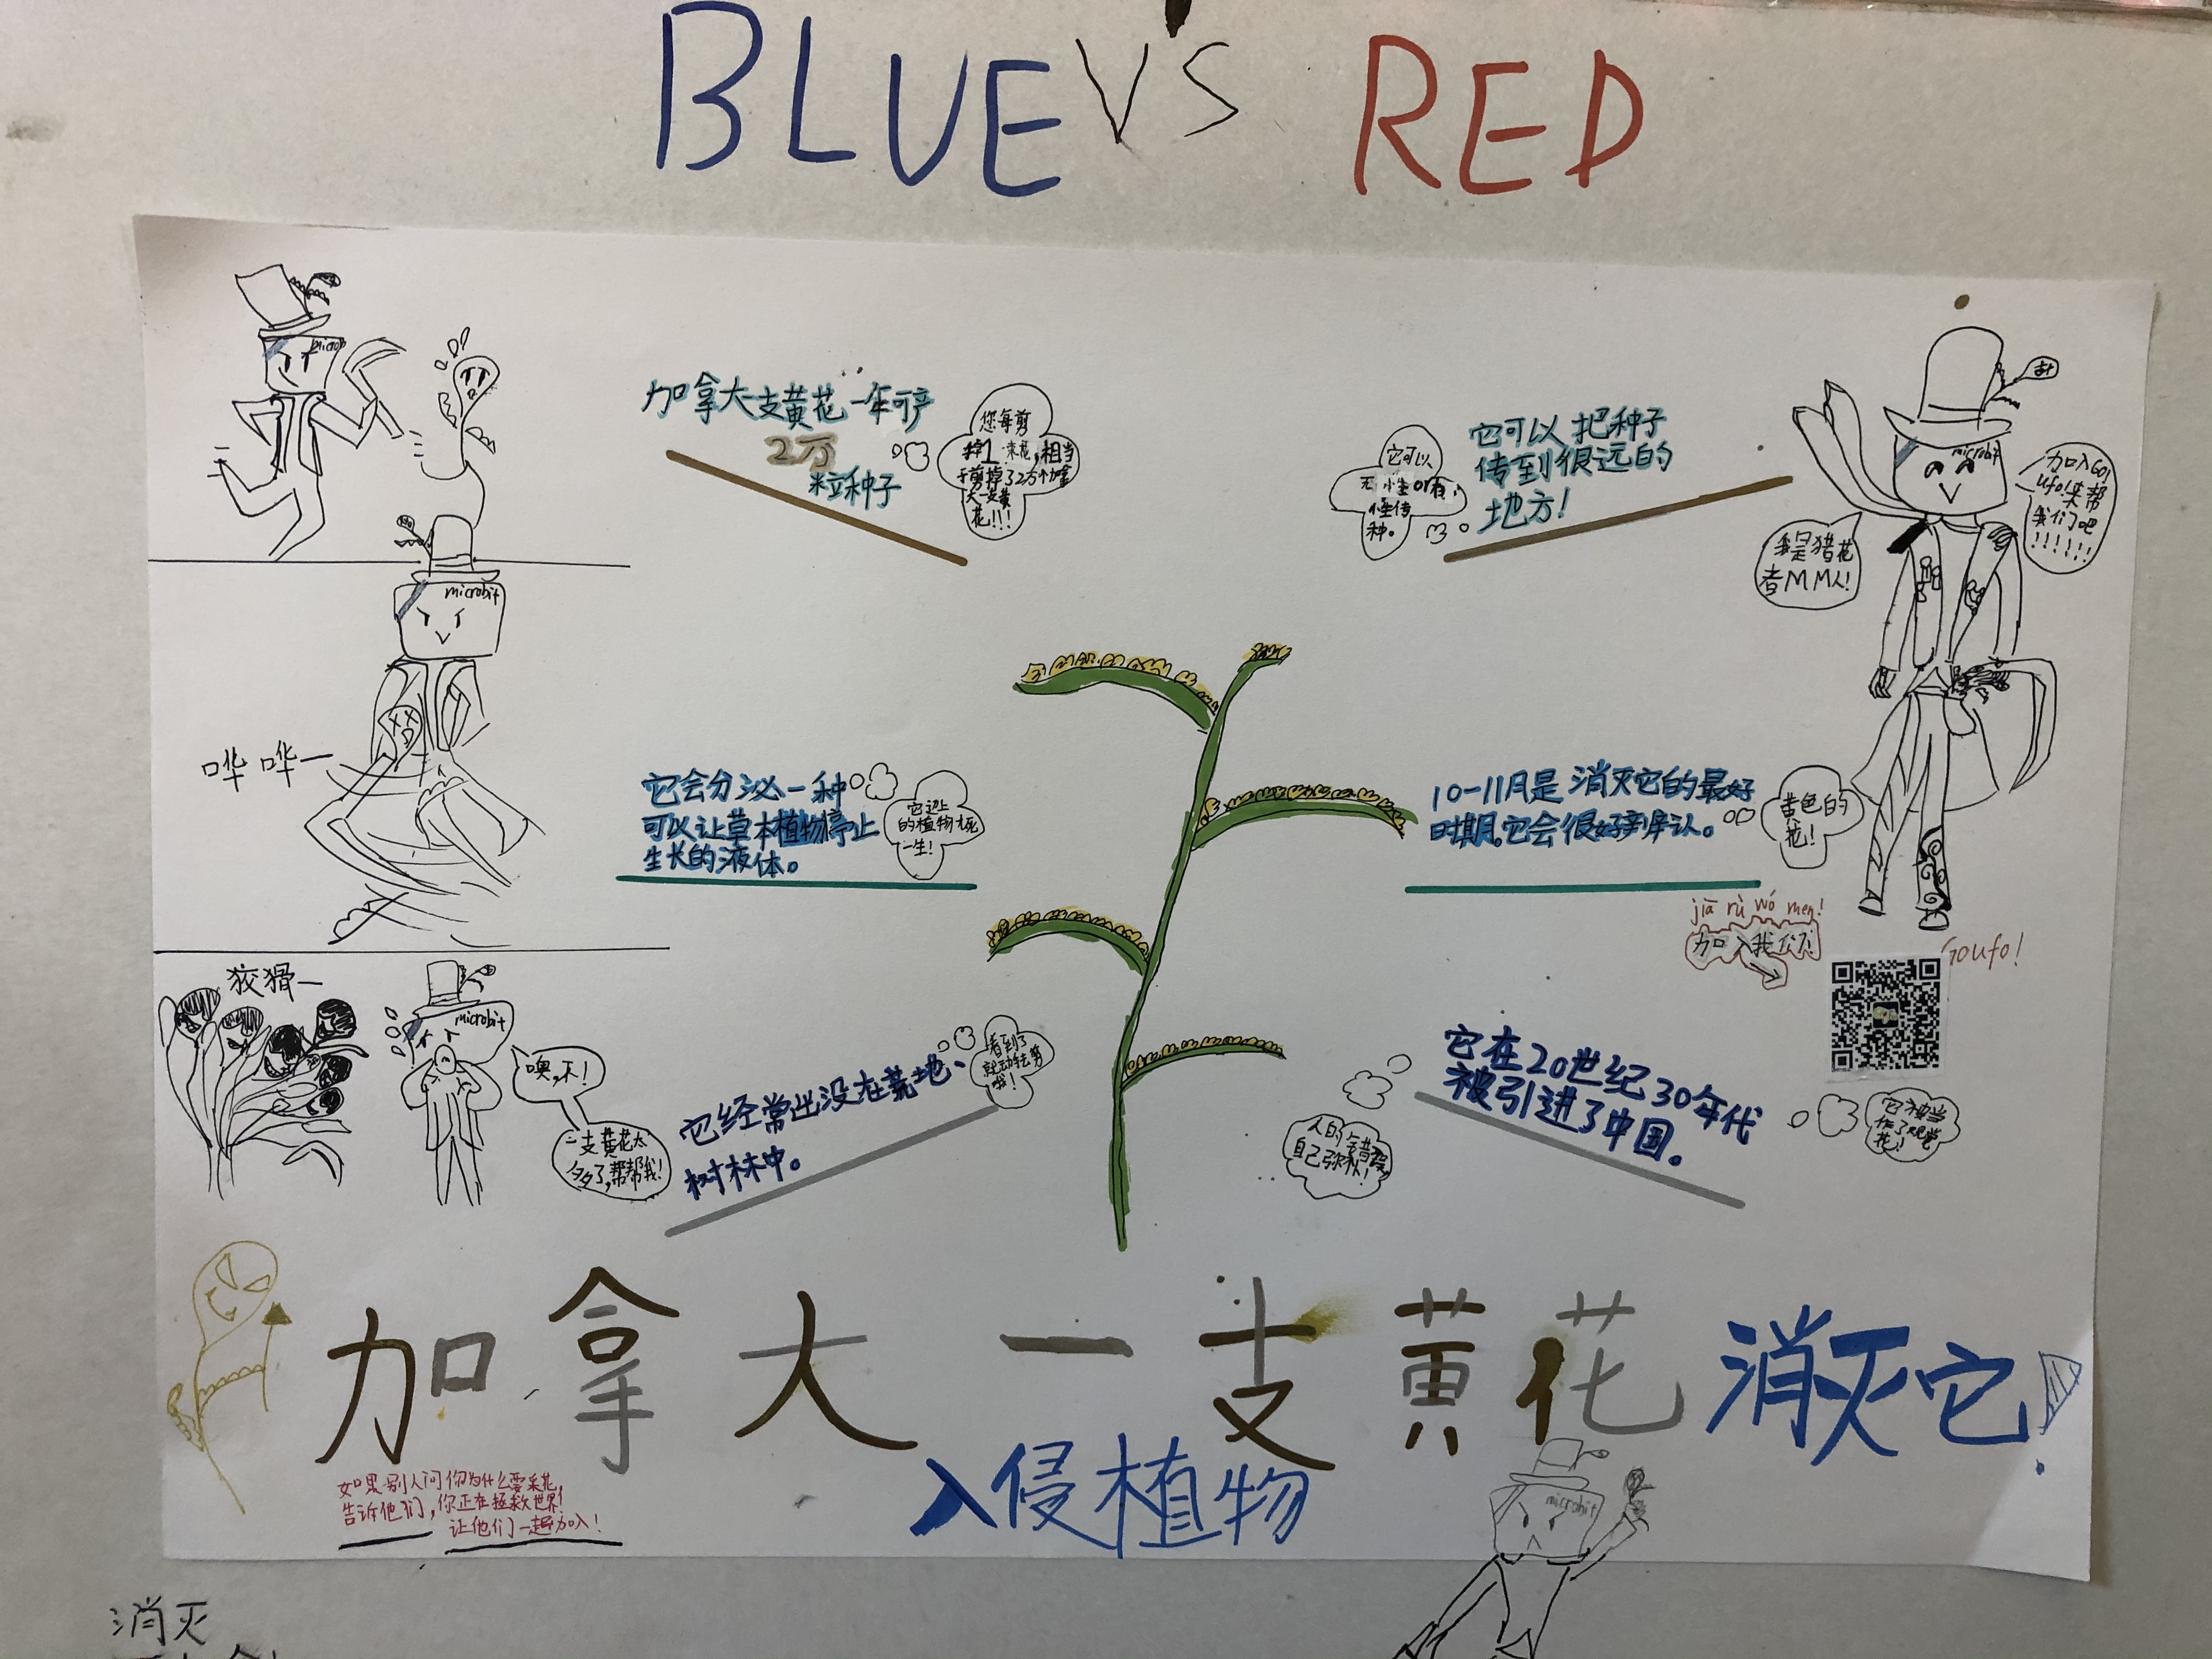 BLUE V'S RED
microb
加拿大一支黄花一年可产
2万
粒种子
您每剪
掉1一束花,相当
于剪掉了2万个加拿
大一支黄
花!!!
它可以
无性or有
性传
种。
它可以把种子
传到很远的
地方!
microbit
加入GO!
ufo!来帮
我们吧
!!!!!!
我是猎花
者MM人!
microbit
哗哗一
它会分泌一种
可以让草本植物停止
生长的液体。
它边上
的植物
一生!
10-11月是消灭它的最好
时期。它会很好辨认。
黄色的
花!
jiā rù wǒ men!
加入我们!
Goufo!
狡猾一
microbit
噢,不!
一支黄花太
多了,帮帮我!
它经常出没在荒地、
树林中。
看到了
就动手去剪
哦!
它在20世纪30年代
被引进了中国。
人的错误
自己弥补!
它被当
作了观赏
花!
加拿大一支黄花 消灭它!
入侵植物
如果别人问你为什么要采花,
告诉他们,你正在拯救世界!
让他们一起加入!
microbit
消灭